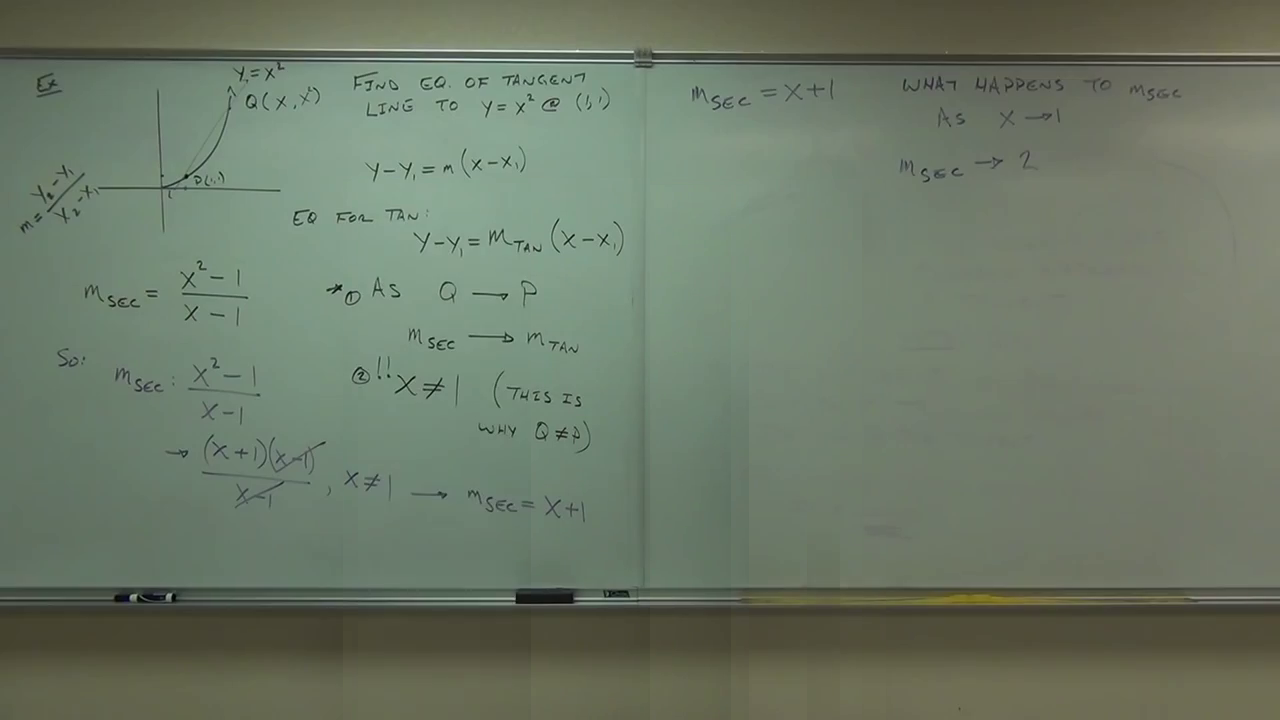 Ex
Y=X²
Q(X, X²)
P(1,1)
1
m = Y₂-Y₁ / X₂-X₁
FIND EQ. OF TANGENT
LINE TO Y=X² @ (1,1)
Y-Y₁ = m(X-X₁)
EQ FOR TAN:
Y-Y₁ = m_TAN (X-X₁)
m_SEC = X²-1 / X-1
* ① AS Q → P
m_SEC → m_TAN
So: m_SEC: X²-1 / X-1
② !! X≠1 (THIS IS
WHY Q≠P)
→ (X+1)(X-1) / X-1 , X≠1 → m_SEC = X+1
m_SEC = X+1
WHAT HAPPENS TO m_SEC
AS X → 1
m_SEC → 2